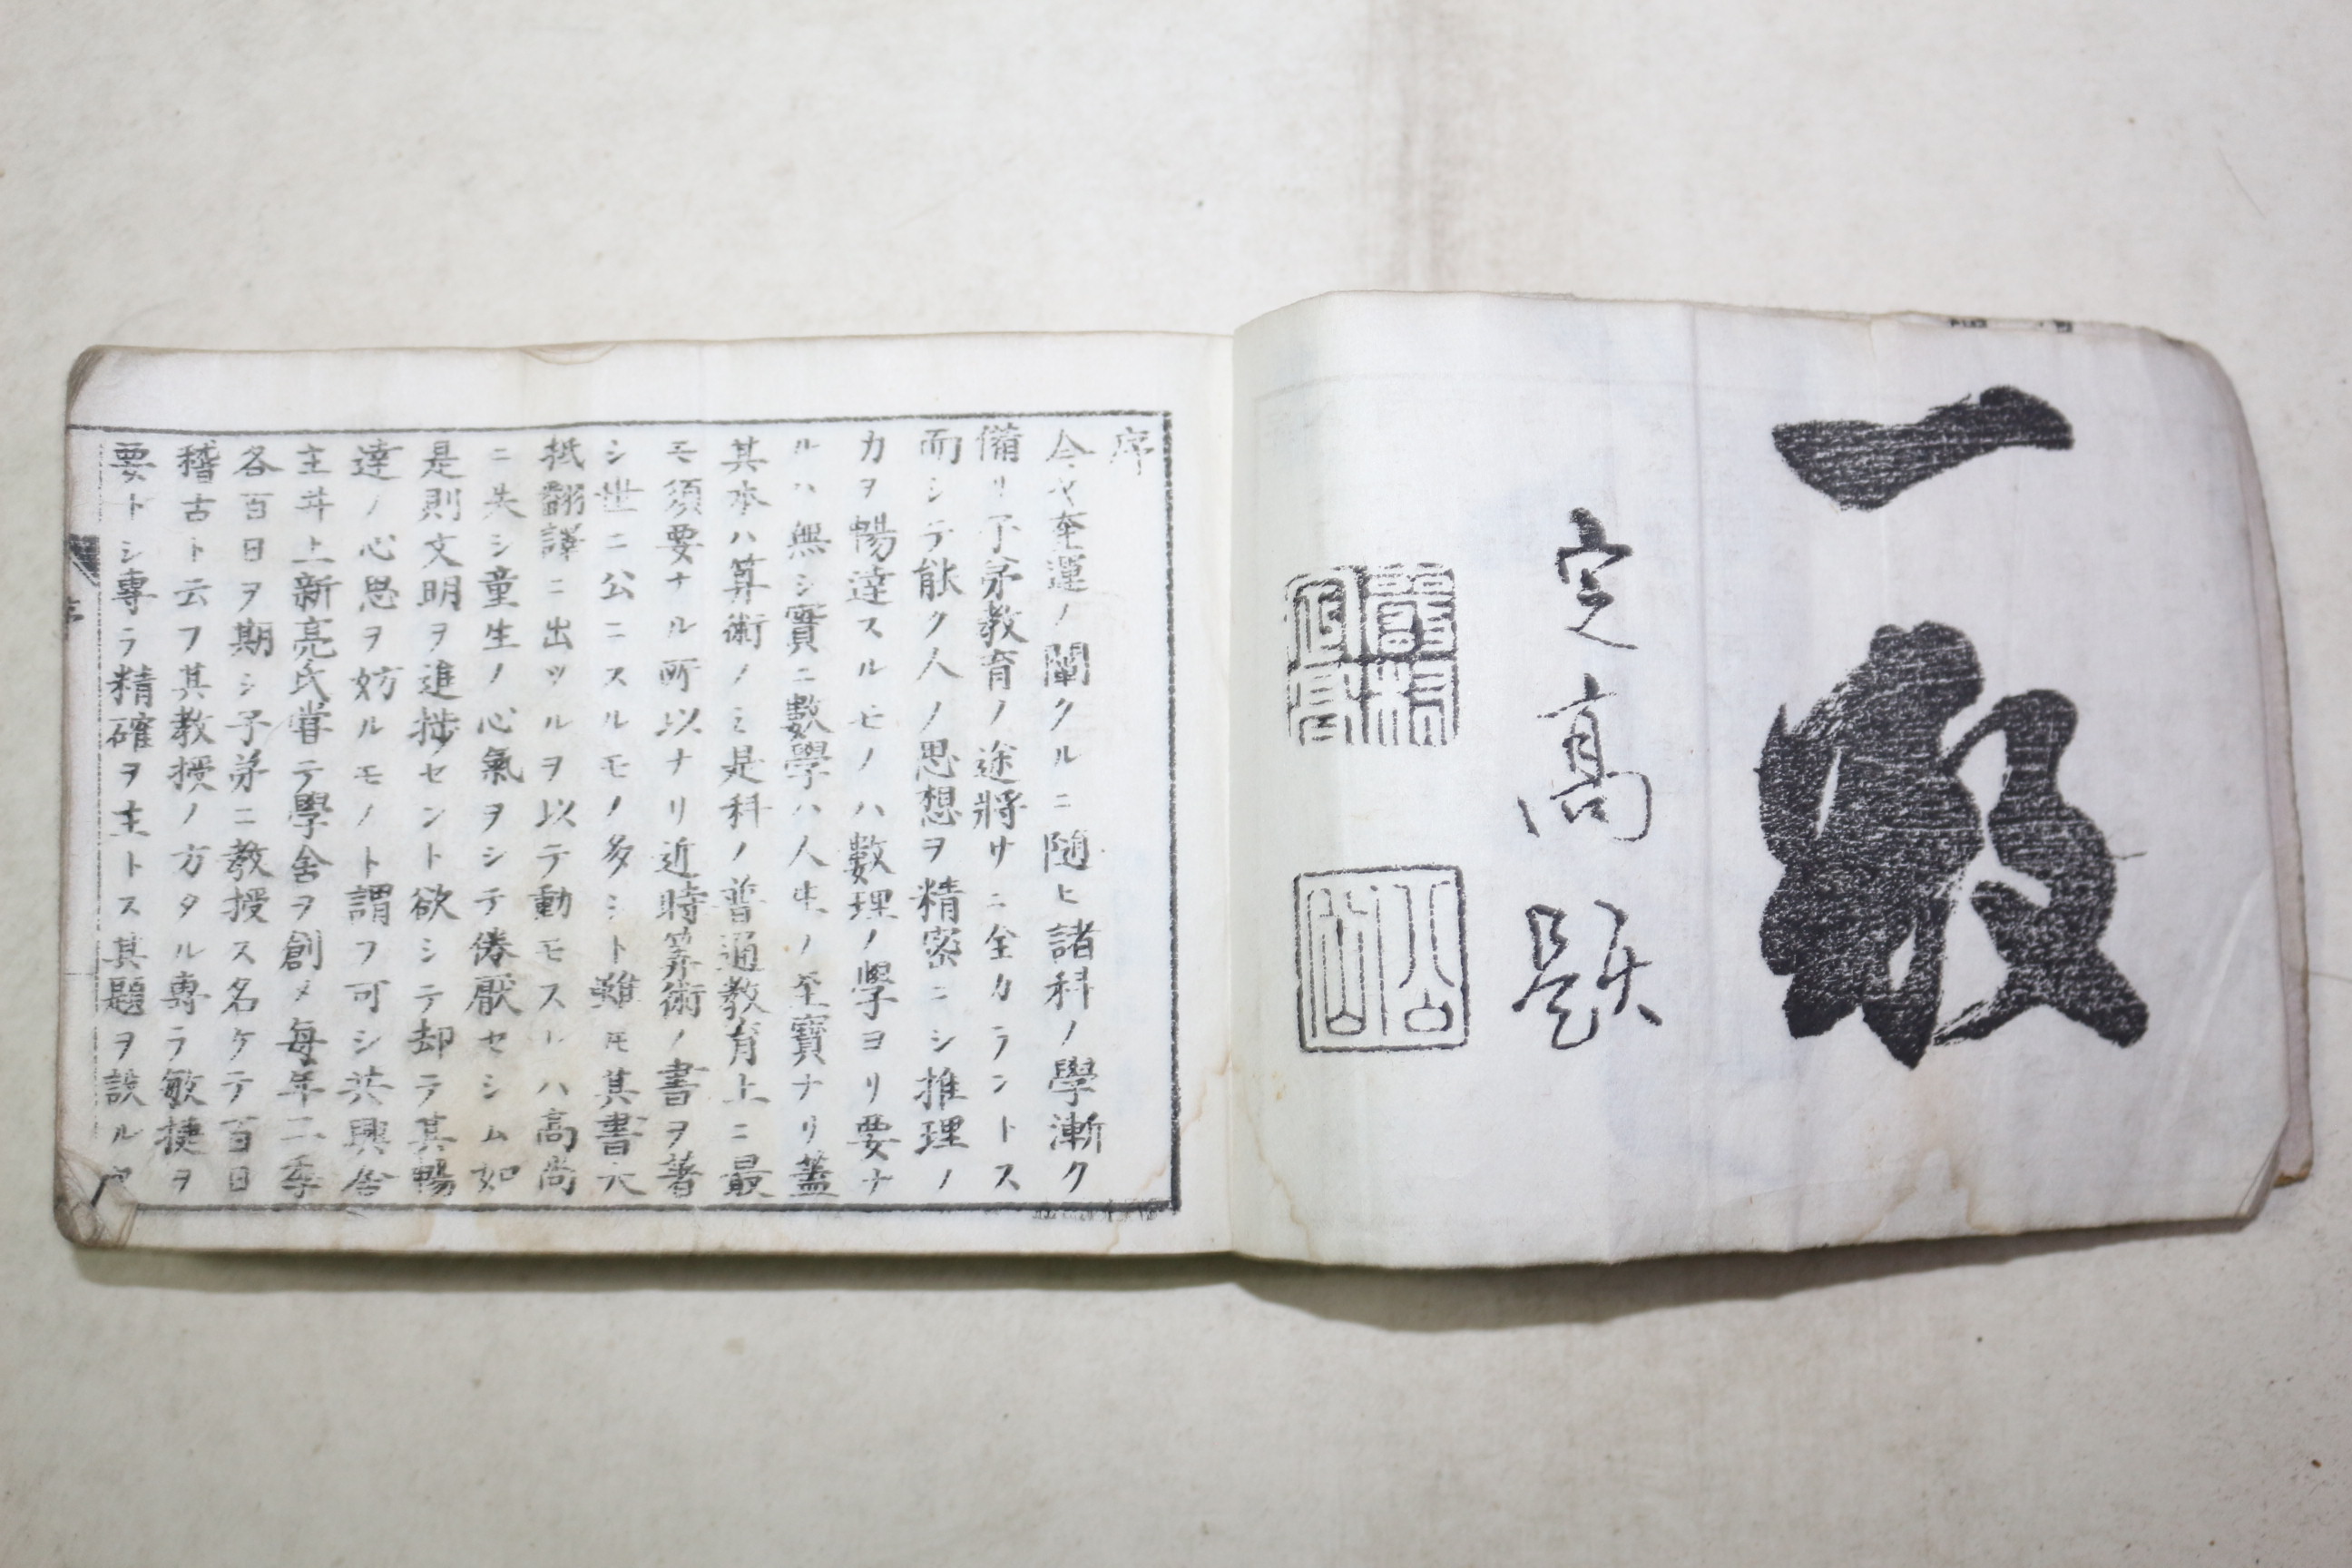 一
定高題
序
今ヤ奎運ノ闡クルニ隨ヒ諸科ノ學漸ク
備リ子弟教育ノ途將サニ全カラントス
而シテ能ク人ノ思想ヲ精密ニシ推理ノ
力ヲ暢達スルモノハ數理ノ學ヨリ要ナ
ルハ無シ實ニ數學ハ人生ノ至寶ナリ蓋
其本ハ算術ノミ是科ノ普通教育上ニ最
モ須要ナル所以ナリ近時算術ノ書ヲ著
シ世ニ公ニスルモノ多シト雖モ其書大
抵翻譯ニ出ツルヲ以テ動モスレハ高尚
ニ失シ童生ノ心氣ヲシテ倦厭セシム如
是則文明ヲ進捗セント欲シテ却テ其暢
達ノ心思ヲ妨ルモノト謂フ可シ共興舎
主井上新亮氏甞テ學舍ヲ創メ毎年二季
各百日ヲ期シ子弟ニ教授ス名ケテ百日
稽古ト云フ其教授ノ方タル專ラ敏捷ヲ
要トシ專ラ精確ヲ主トス其題ヲ設ル